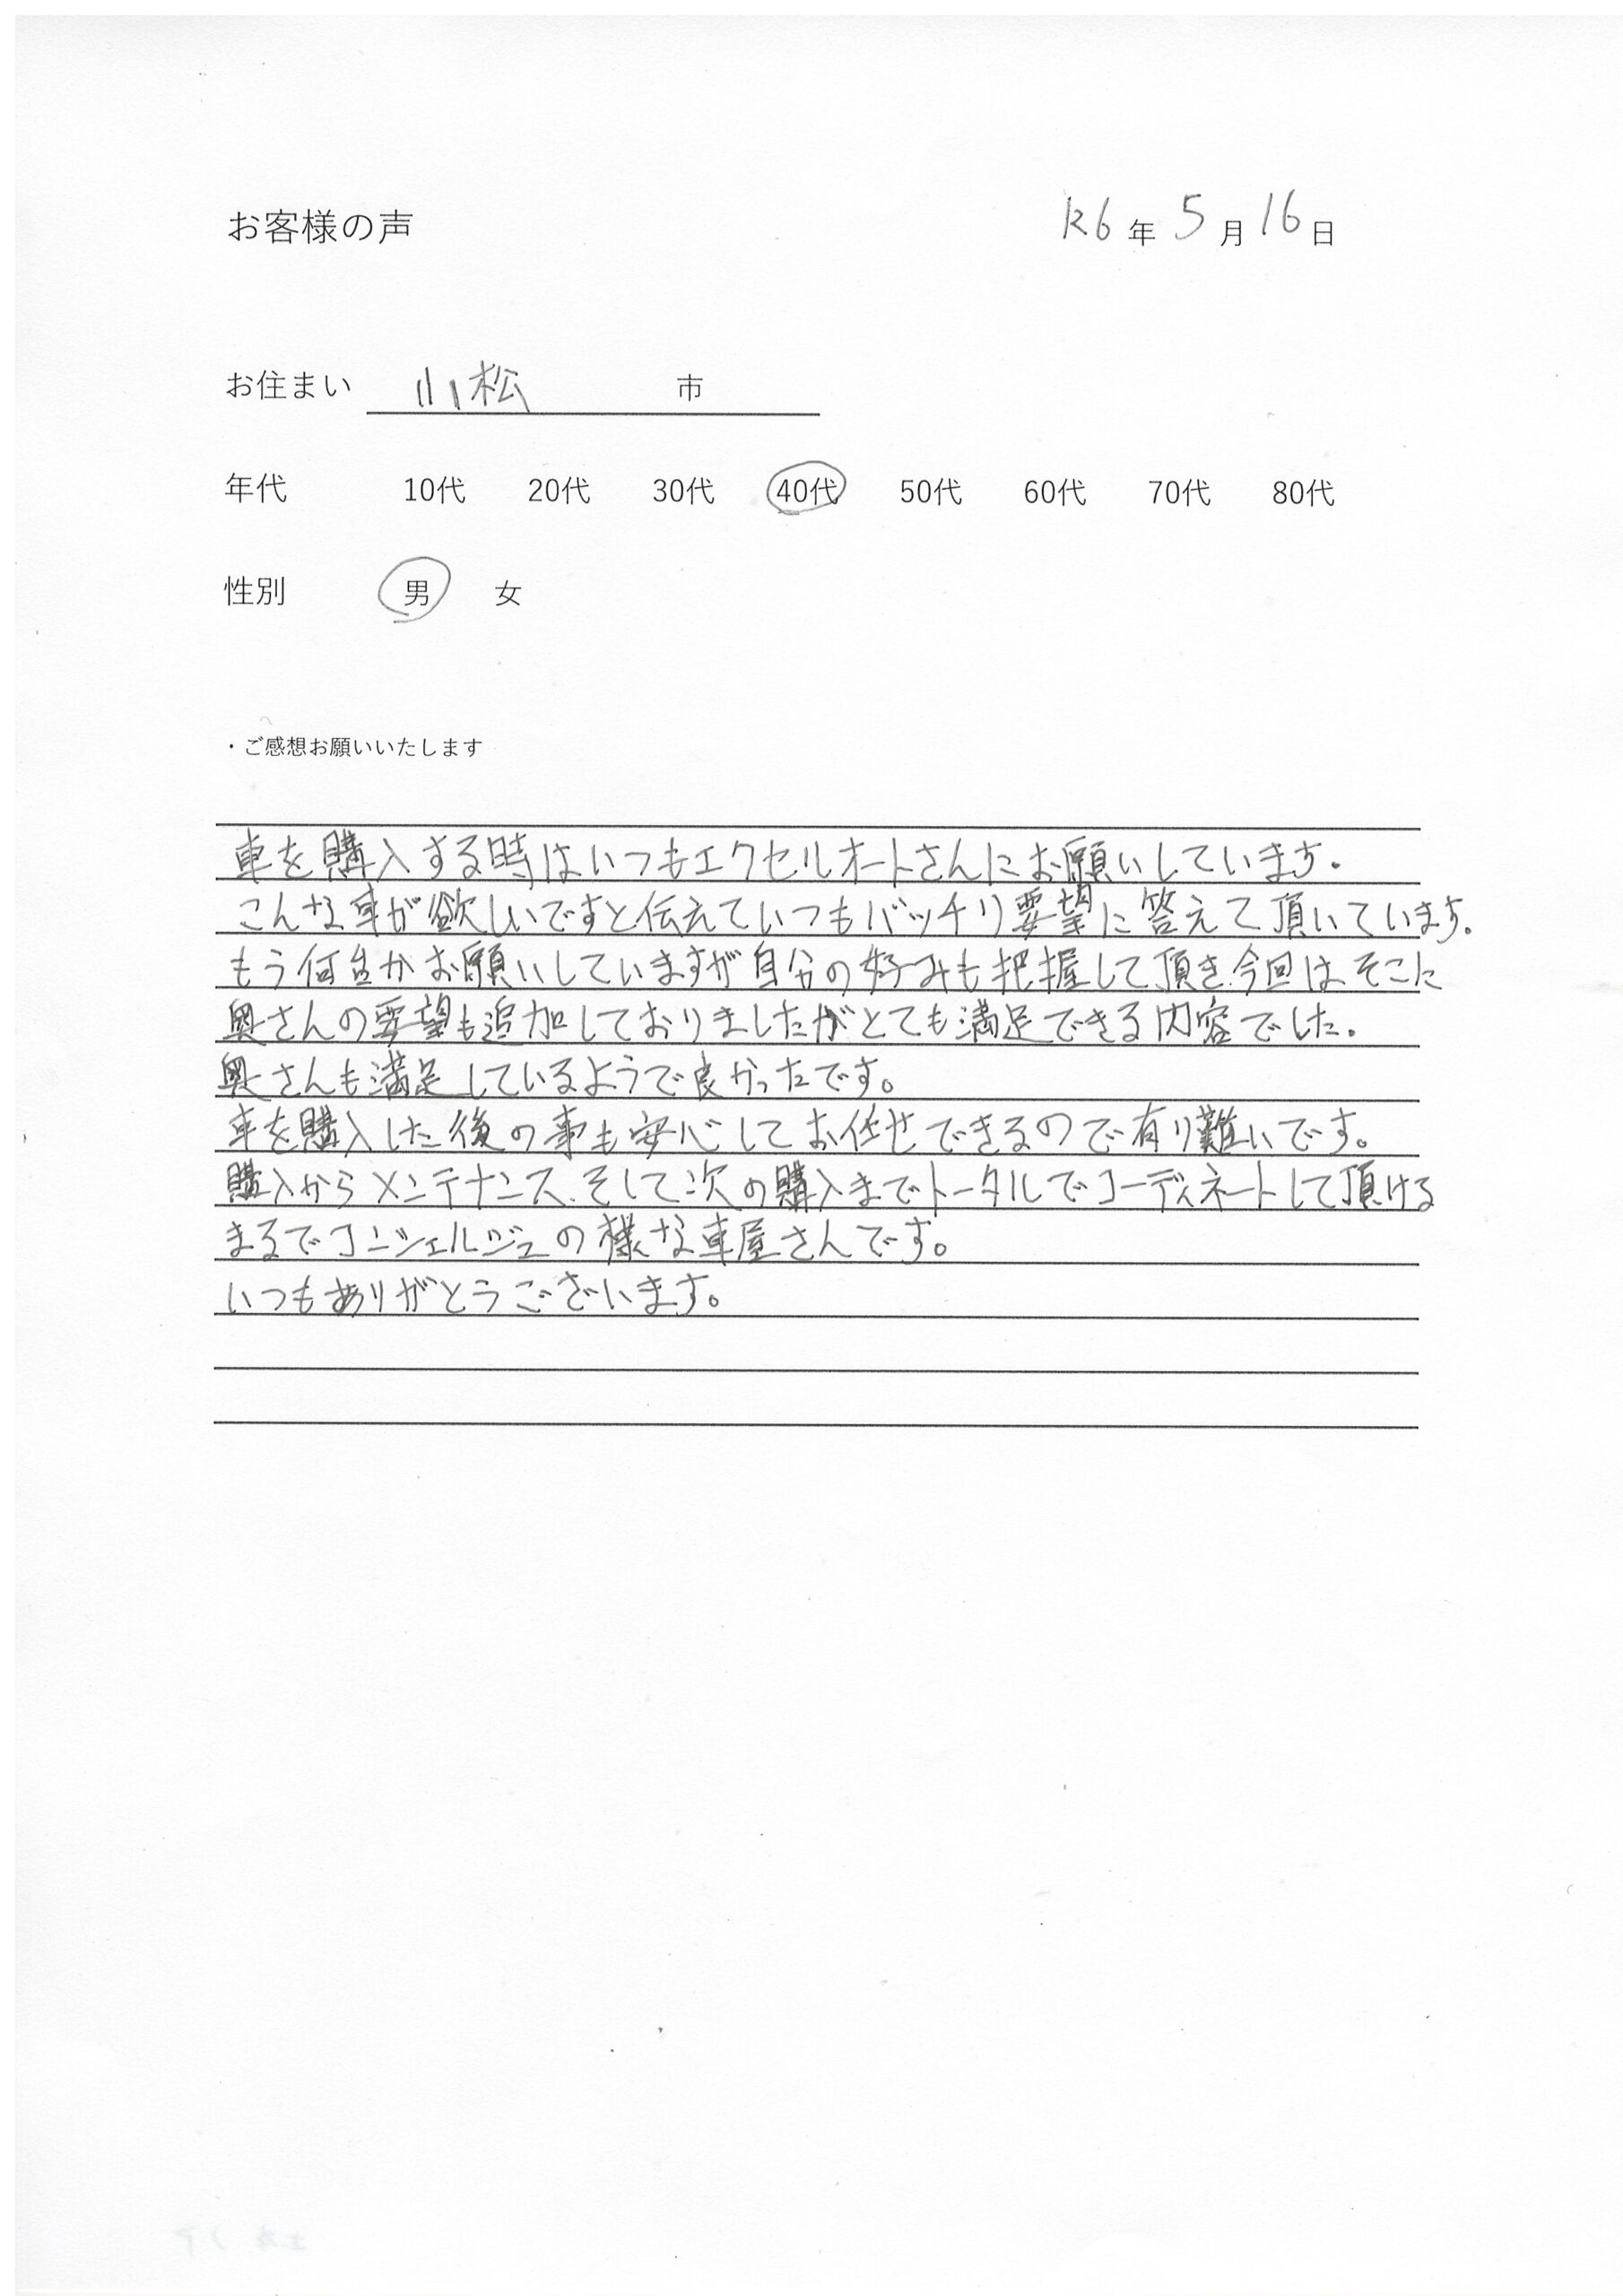 お客様の声
R6年5月16日
お住まい 小松 市
年代 10代 20代 30代 40代 50代 60代 70代 80代
性別 男 女
・ご感想お願いいたします
車を購入する時はいつもエクセルオートさんにお願いしています。
こんな車が欲しいですと伝えていつもバッチリ要望に答えて頂いています。
もう何台かお願いしていますが自分の好みも把握して頂き、今回はそこに
奥さんの要望も追加しておりましたがとても満足できる内容でした。
奥さんも満足しているようで良かったです。
車を購入した後の事も安心してお任せできるので有り難いです。
購入からメンテナンス、そして次の購入までトータルでコーディネートして頂ける
まるでコンシェルジュの様な車屋さんです。
いつもありがとうございます。